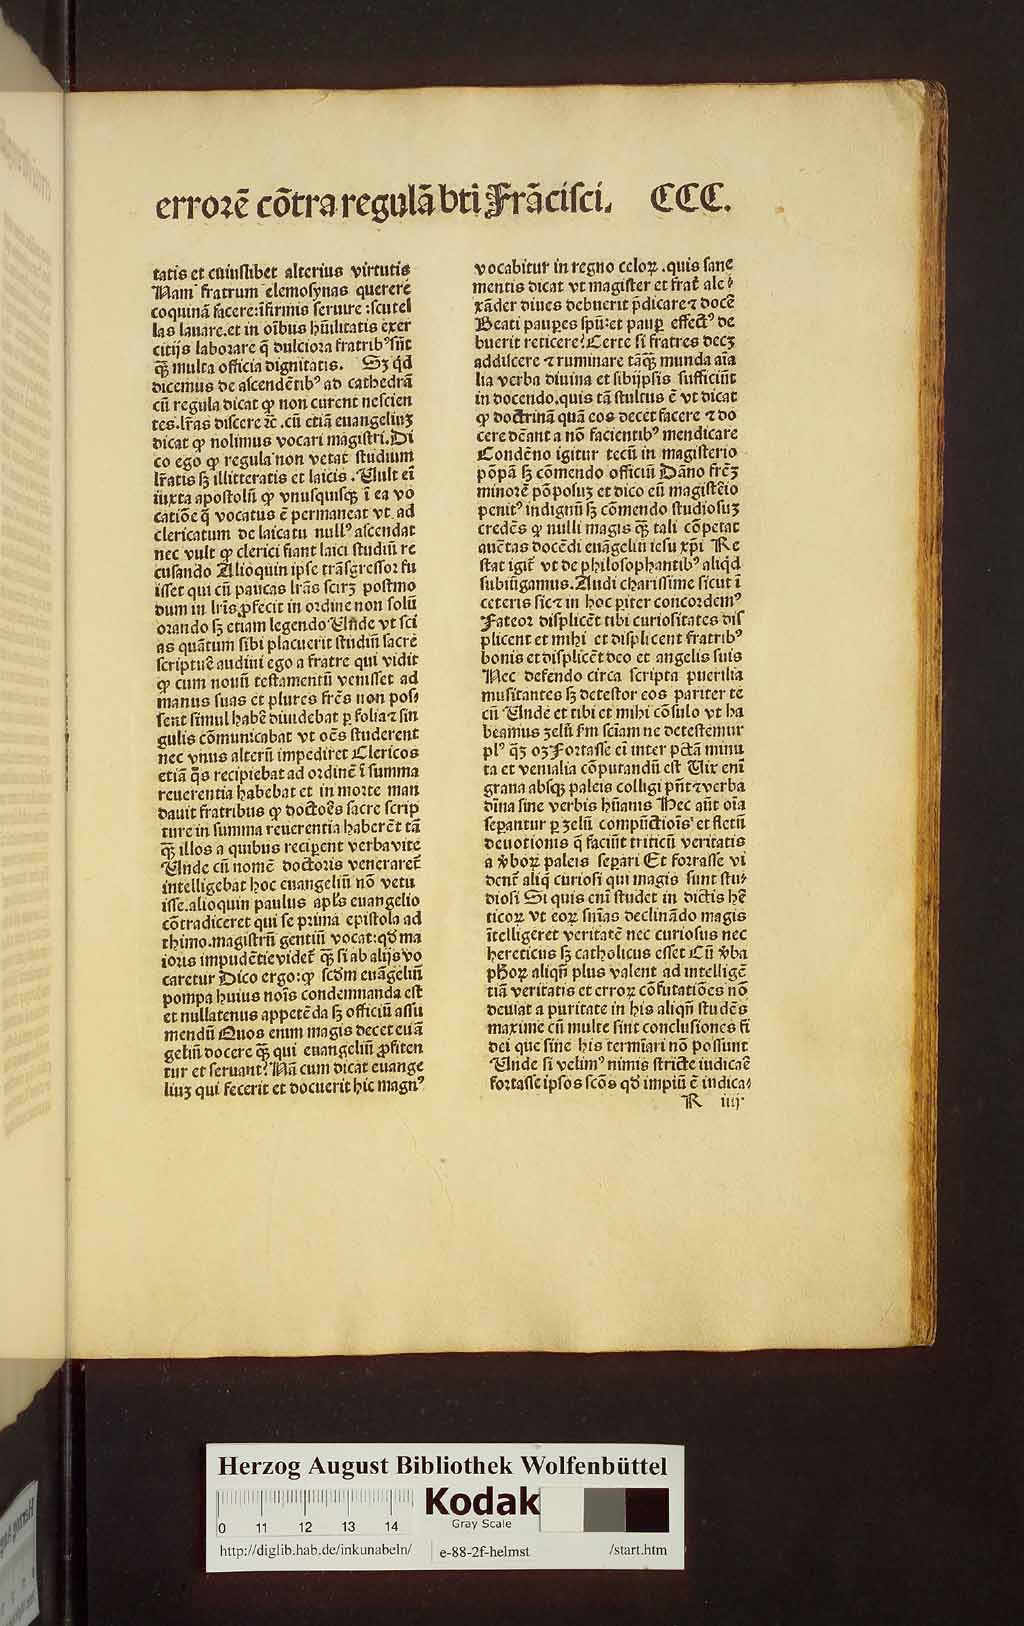 errorē cōtra regulā bti Frācisci. CCC.
tatis et cuiuslibet alterius virtutis
Nam fratrum elemosynas querere
coquinā facere: īfirmis seruire :scutel
las lauare.et in oībus hūilitatis exer
citijs laborare q̄ dulciora fratribꝰ sūt
qꝫ̄ multa officia dignitatis. Sꝫ qͥd
dicemus de ascendētibꝰ ad cathedrā
cū regula dicat ꝙ non curent nescien
tes.lr̄as discere ⁊c̄ .cū etiā euangeliuꝫ
dicat ꝙ nolimus vocari magistri.Di
co ego ꝙ regula non vetat studium
lr̄atis sꝫ illitteratis et laicis . Vult eī
iuxta apostolū ꝙ vnusquisqꝫ ī ea vo
catiōe q̄ vocatus ē permaneat vt ad
clericatum de laicatu nullꝰ ascendat
nec vult ꝙ clerici fiant laici studiū re
cusando Alioquin ipse trāsgressor fu
isset qui cū paucas lr̄as sciꝛꝫ postmo
dum in lr̄is ꝓfecit in ordine non solū
orando sꝫ etiam legendo Vn̄de vt sci
as quātum sibi placuerit studiū sacre
scripture audiui ego a fratre qui vidit
ꝙ cum nouū testamentū venisset ad
manus suas et plures fr̄es non pos⸗
sent simul habē diuidebat ꝑ folia⁊ sin
gulis cōmunicabat vt oēs studerent
nec vnus alterū impediret Clericos
etiā q̄s recipiebat ad ordinē ī summa
reuerentia habebat et in morte man
dauit fratribus ꝙ doctoēs sacre scrip
ture in summa reuerentia haberēt tā
qꝫ̄ illos a quibus recipent verba vite
Vnde cū nomē doctoris veneraret̄
intelligebat hoc euangeliū nō vetu
isse.alioquin paulus apl̄s euangelio
cōtradiceret qui se prima epistola ad
thimo.magistrū gentiū vocat:qd̄ ma
ioris impudētie videt̄ qꝫ̄ si ab alijs vo
caretur Dico ergo:ꝙ scd̄m euāgeliū
pompa huius noīs condemnanda est
et nullatenus appetēda sꝫ officiū assu
mendū Quos enim magis decet euā
geliū docere qꝫ̄ qui euangeliū ꝓfiten
tur et seruant? Nā cum dicat euange
liuꝫ qui fecerit et docuerit hic magnꝰ
vocabitur in regno celoꝝ .quis sane
mentis dicat vt magister et frat̄ ale⸗
xāder diues debuerit p̄dicare⁊ docē
Beati pauꝑes spū:et pauꝑ effectꝰ de
buerit reticere? Certe si fratres decꝫ
addiscere ⁊ ruminare tāqꝫ̄ munda aīa
lia verba diuina et sibijpsis sufficiūt
in docendo.quis tā stultus ē vt dicat
ꝙ doctrinā quā eos decet facere ⁊ do
cere dēant a nō facientibꝰ mendicare
Condēno igitur tecū in magisterio
pōpā sꝫ cōmendo officiū Dāno frēꝫ
minorē pōposuꝫ et dico eū magistēio
penitꝰ indignū sꝫ cōmendo studiosuꝫ
credēs ꝙ nulli magis qꝫ̄ tali cōpetat
auētas docēdi euāgeliū iesu xp̄i Re
stat igit̄ vt de philosophantibꝰ aliqͥd
subiūgamus.Audi charissime sicut ī
ceteris sic⁊ in hoc ꝑiter concordemꝰ
Fateor displicēt tibi curiositates dis
plicent et mihi et displicent fratribꝰ
bonis et displicēt deo et angelis suis
Nec defendo circa scripta puerilia
musitantes sꝫ detestor eos pariter te
cū Vnde et tibi et mihi cōsulo vt ha
beamus zelū fm̄ sciam ne detestemur
plꝰ qꝫ̄ oꝫ Fortasse eī inter pctā minu
ta et venialia cōputandū est Vix enī
grana absqꝫ paleis colligi pn̄t⁊ verba
dīna sine verbis hūanis Hec aūt oīa
seꝑantur ꝑ zelū compūctioīs et fletū
deuotionis q̄ faciūt triticū veritatis
a v̄boꝝ paleis seꝑari Et fortasse vi
dent̄ aliqͥ curiosi qui magis sunt stu⸗
diosi Si quis enī studet in dictis hē
ticoꝝ vt eoꝝ snīas declinādo magis
ītelligeret veritatē nec curiosus nec
hereticus sꝫ catholicus esset Cū v̄ba
phoꝝ aliqn̄ plus valent ad intelligē
tiā veritatis et erroꝝ cōfutatiōes nō
deuiat a puritate in his aliqn̄ studēs
maxime cū multe sint conclusiones fi
dei que sine his termīari nō possunt
Vnde si velimꝰ nimis stricte iudicaē
fortasse ipsos scōs qd̄ impiū ē iudica⸗
R iiij
Herzog August Bibliothek Wolfenbüttel
0 11 12 13 14
Kodak
Gray Scale
http://diglib.hab.de/inkunabeln/ e-88-2f-helmst /start.htm